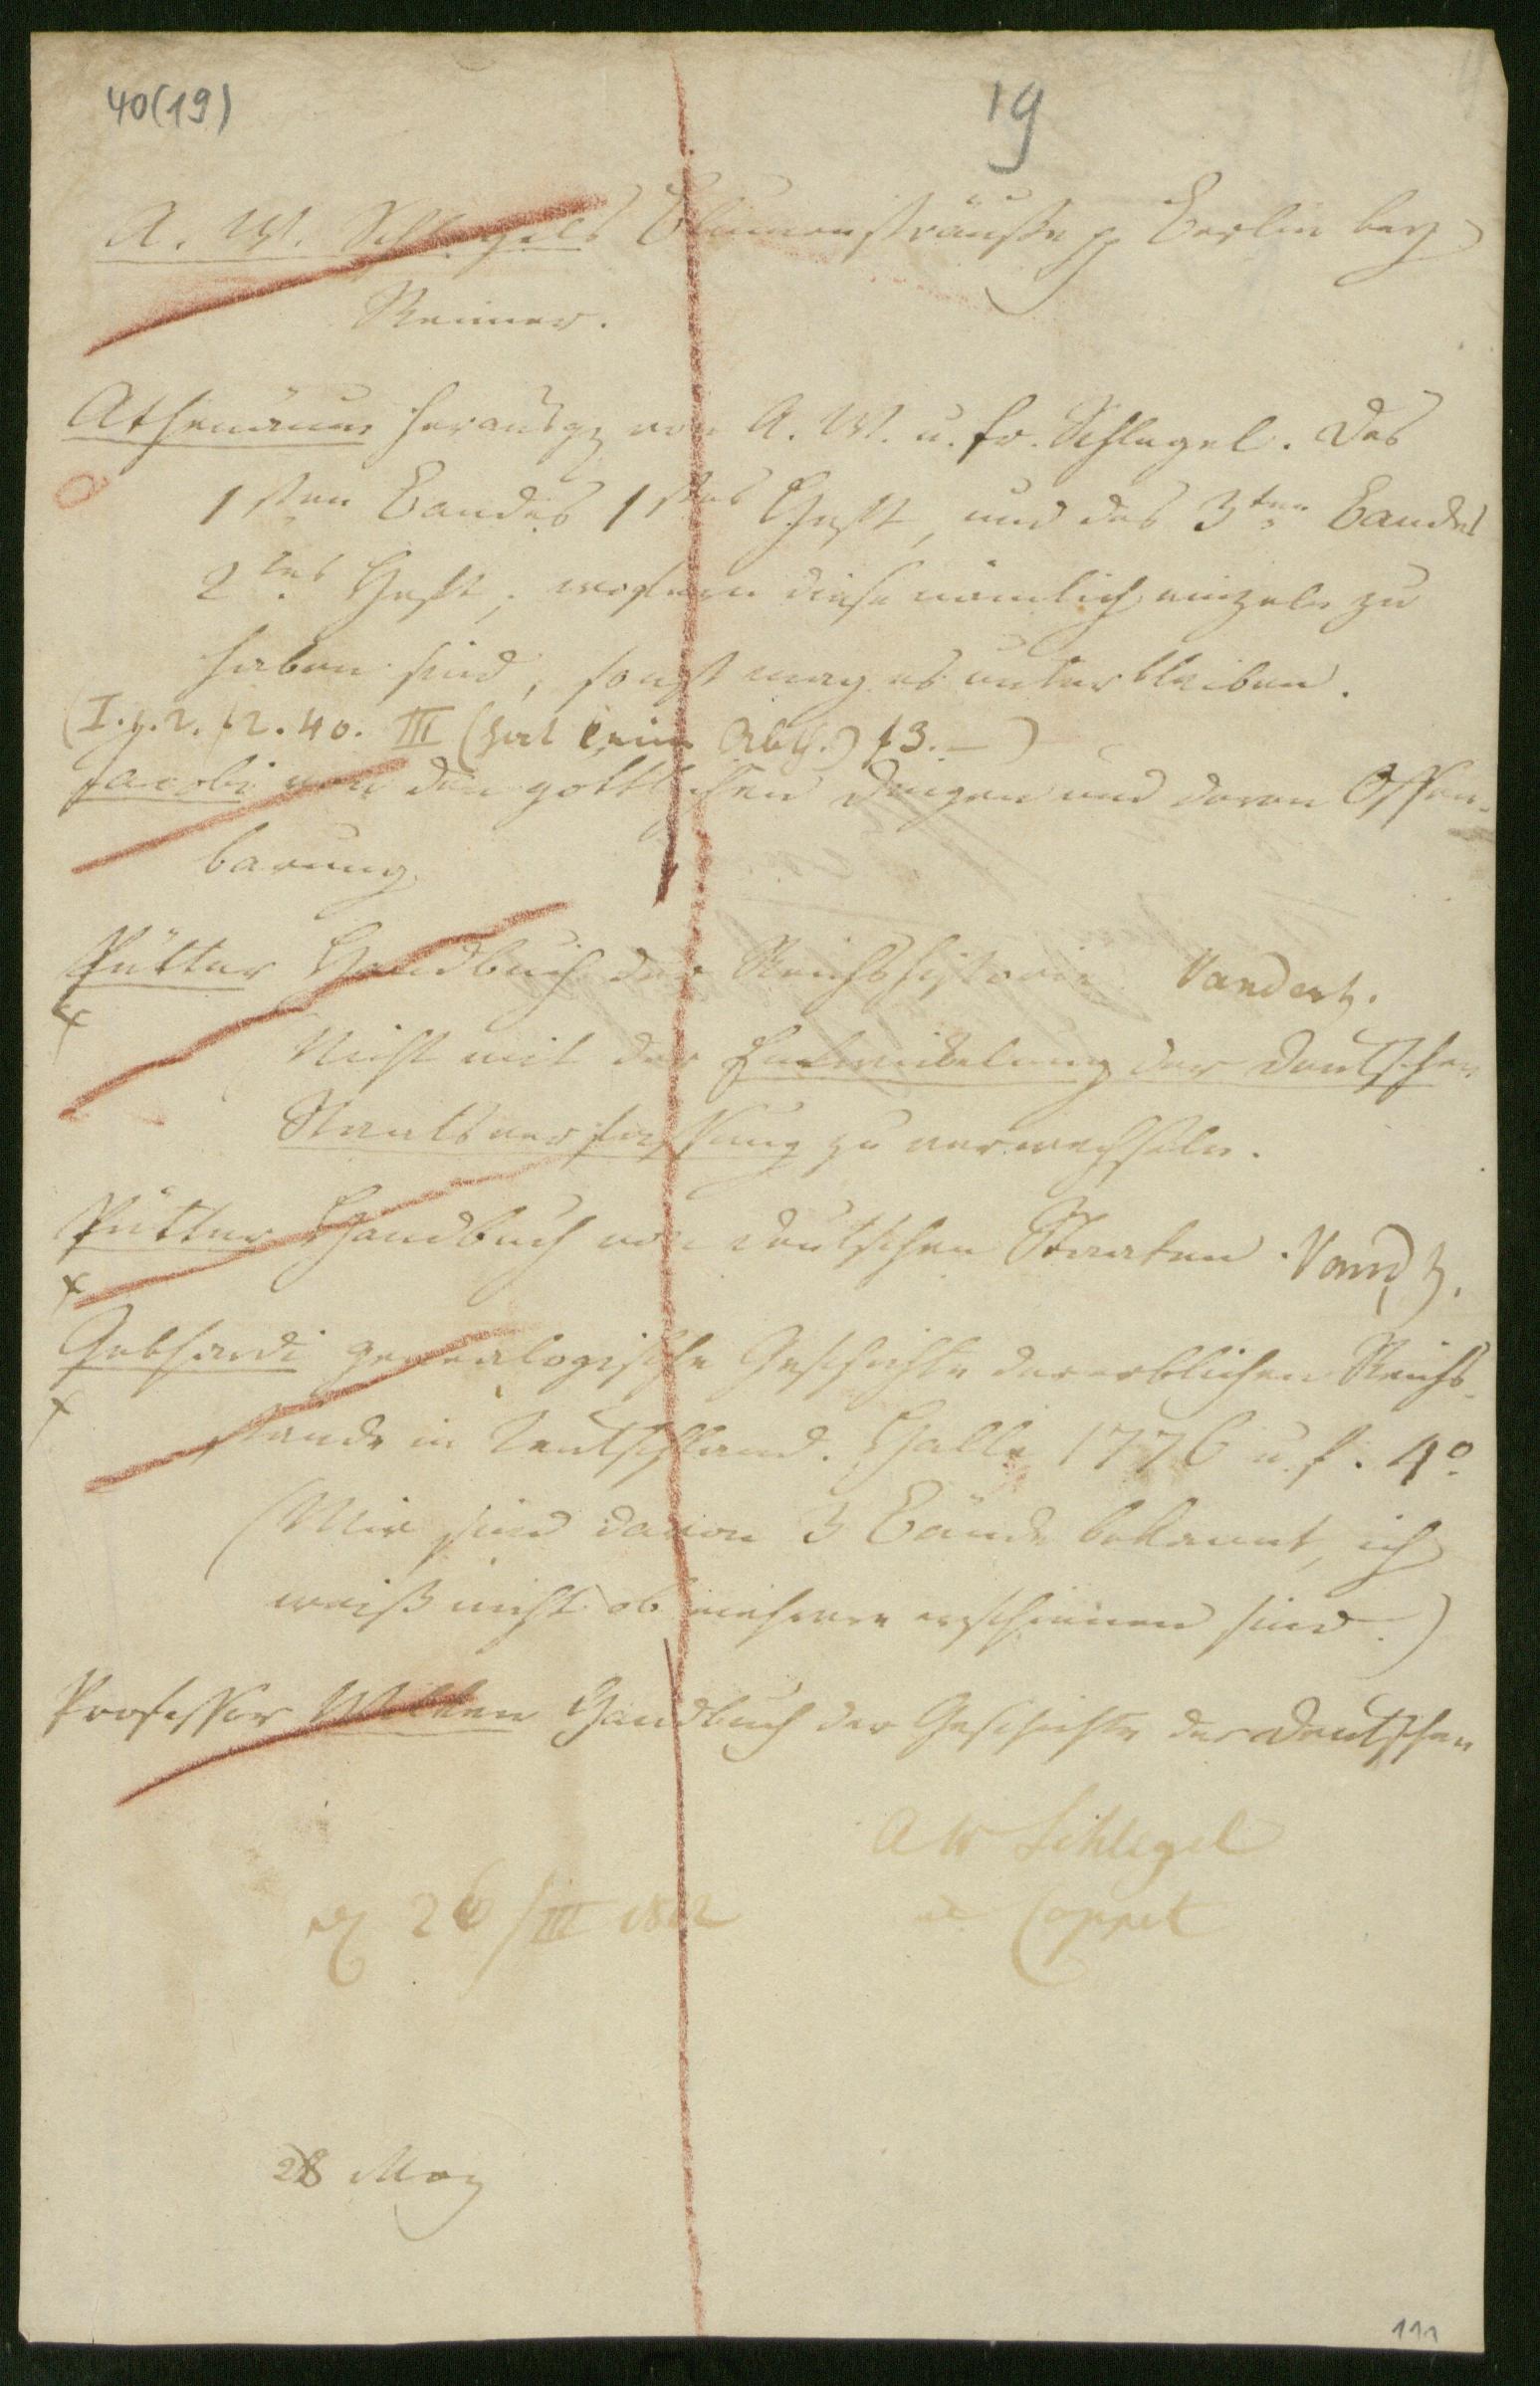 40(19)
19
A. W. Schlegels Blumensträuße pp Berlin bey
Reimer.
Athenäum herausg von A. W. u. Fr. Schlegel. Des
1sten Bandes 1stes Heft, und des 3ten Bandes
2tes Heft, wofern diese nämlich einzeln zu
haben sind, sonst mag es unterbleiben.
(I. 1. 2. f 2. 40. III (hat keine Abth.) f 3. —)
Jacobi von den göttlichen Dingen und deren Offen-
barung.
Pütter Handbuch der Reichshistorie. Vandenh.
Nicht mit der Entwickelung der deutschen
Staatsverfassung zu verwechseln.
Pütter Handbuch von deutschen Staaten. Vand h.
Gebhardi genealogische Geschichte der erblichen Reichs-
stände in Teutschland. Halle 1776 u. f. 4o
(Mir sind davon 3 Bände bekannt, ich
weiß nicht ob mehrere erschienen sind.)
Professor Wilken Handbuch der Geschichte der deutschen
AW Schlegel
Coppet
26/III 1812
28 May
111